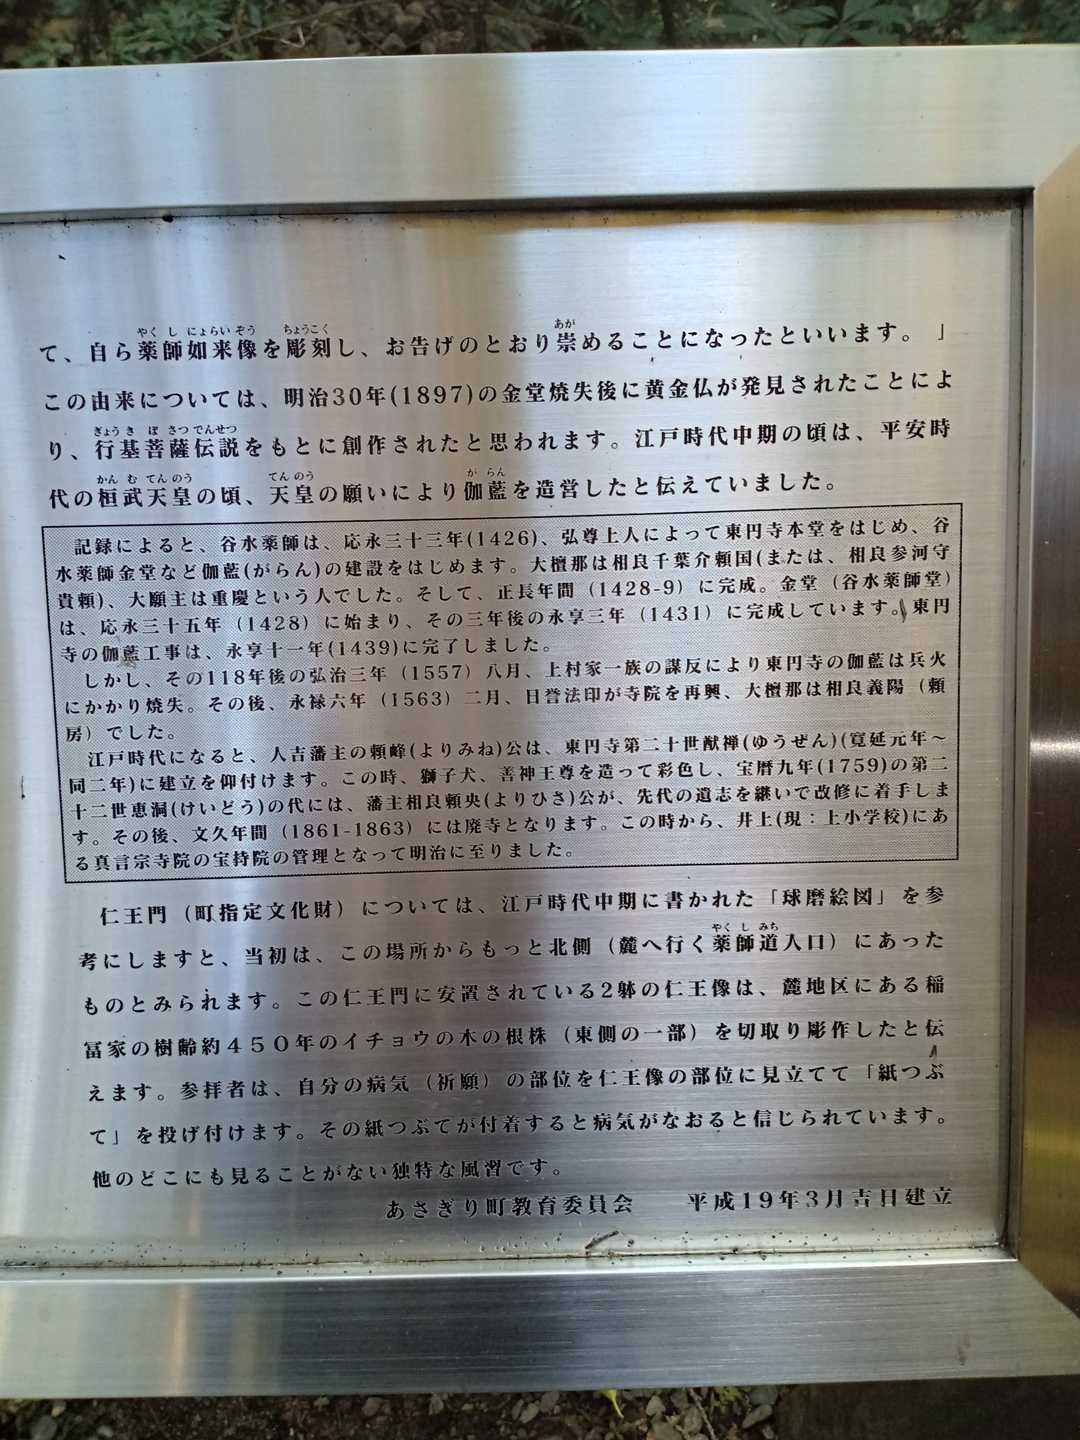 て、自ら薬師如来像を彫刻し、お告げのとおり崇めることになったといいます。」
この由来については、明治30年(1897)の金堂焼失後に黄金仏が発見されたことによ
り、行基菩薩伝説をもとに創作されたと思われます。江戸時代中期の頃は、平安時
代の桓武天皇の頃、天皇の願いにより伽藍を造営したと伝えていました。
記録によると、谷水薬師は、応永三十三年(1426)、弘尊上人によって東円寺本堂をはじめ、谷
水薬師金堂など伽藍(がらん)の建設をはじめます。大檀那は相良千葉介頼国(または、相良参河守
貴頼)、大願主は重慶という人でした。そして、正長年間（1428-9）に完成。金堂（谷水薬師堂）
は、応永三十五年（1428）に始まり、その三年後の永享三年（1431）に完成しています。東円
寺の伽藍工事は、永享十一年(1439)に完了しました。
しかし、その118年後の弘治三年（1557）八月、上村家一族の謀反により東円寺の伽藍は兵火
にかかり焼失。その後、永禄六年（1563）二月、日誉法印が寺院を再興、大檀那は相良義陽（頼
房）でした。
江戸時代になると、人吉藩主の頼峰(よりみね)公は、東円寺第二十世猷禅(ゆうぜん)(寛延元年～
同二年)に建立を仰付けます。この時、獅子犬、善神王尊を造って彩色し、宝暦九年(1759)の第二
十二世恵洞(けいどう)の代には、藩主相良頼央(よりひさ)公が、先代の遺志を継いで改修に着手しま
す。その後、文久年間（1861-1863）には廃寺となります。この時から、井上(現：上小学校)にあ
る真言宗寺院の宝持院の管理となって明治に至りました。
仁王門（町指定文化財）については、江戸時代中期に書かれた「球磨絵図」を参
考にしますと、当初は、この場所からもっと北側（麓へ行く薬師道入口）にあった
ものとみられます。この仁王門に安置されている2躰の仁王像は、麓地区にある稲
冨家の樹齢約４５０年のイチョウの木の根株（東側の一部）を切取り彫作したと伝
えます。参拝者は、自分の病気（祈願）の部位を仁王像の部位に見立てて「紙つぶ
て」を投げ付けます。その紙つぶてが付着すると病気がなおると信じられています。
他のどこにも見ることがない独特な風習です。
あさぎり町教育委員会　　平成19年3月吉日建立